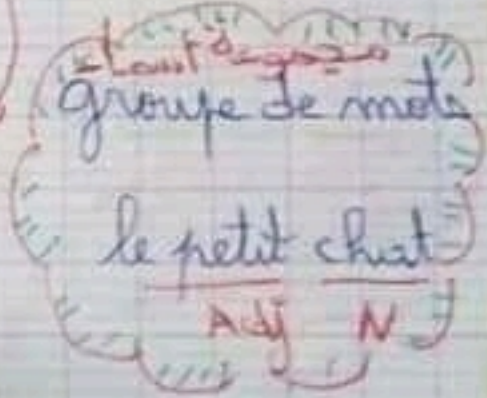 مجموعة أسماء
groupe de mots
le petit chat
Adj N